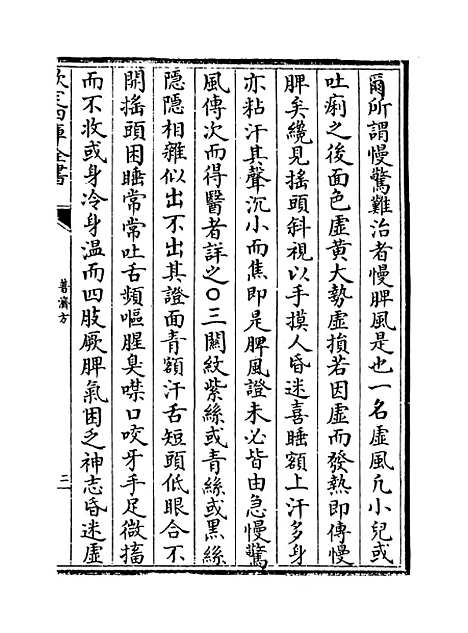 爾所謂慢驚難治者慢脾風是也一名虛風凡小兒或
吐痢之後面色虛黃大勢虛損若因虛而發熱即傳慢
脾矣纔見搖頭斜視以手摸人昏迷喜睡額上汗多身
亦粘汗其聲沉小而焦即是脾風證未必皆由急慢驚
風傳次而得醫者詳之〇三關紋紫絲或青絲或黑絲
隱隱相雜似出不出其證面青額汗舌短頭低眼合不
開搖頭困睡常常吐舌頻嘔腥臭噤口咬牙手足微搐
而不收或身冷身温而四肢厥脾氣困乏神志昏迷虛
欽定四庫全書
普濟方
三